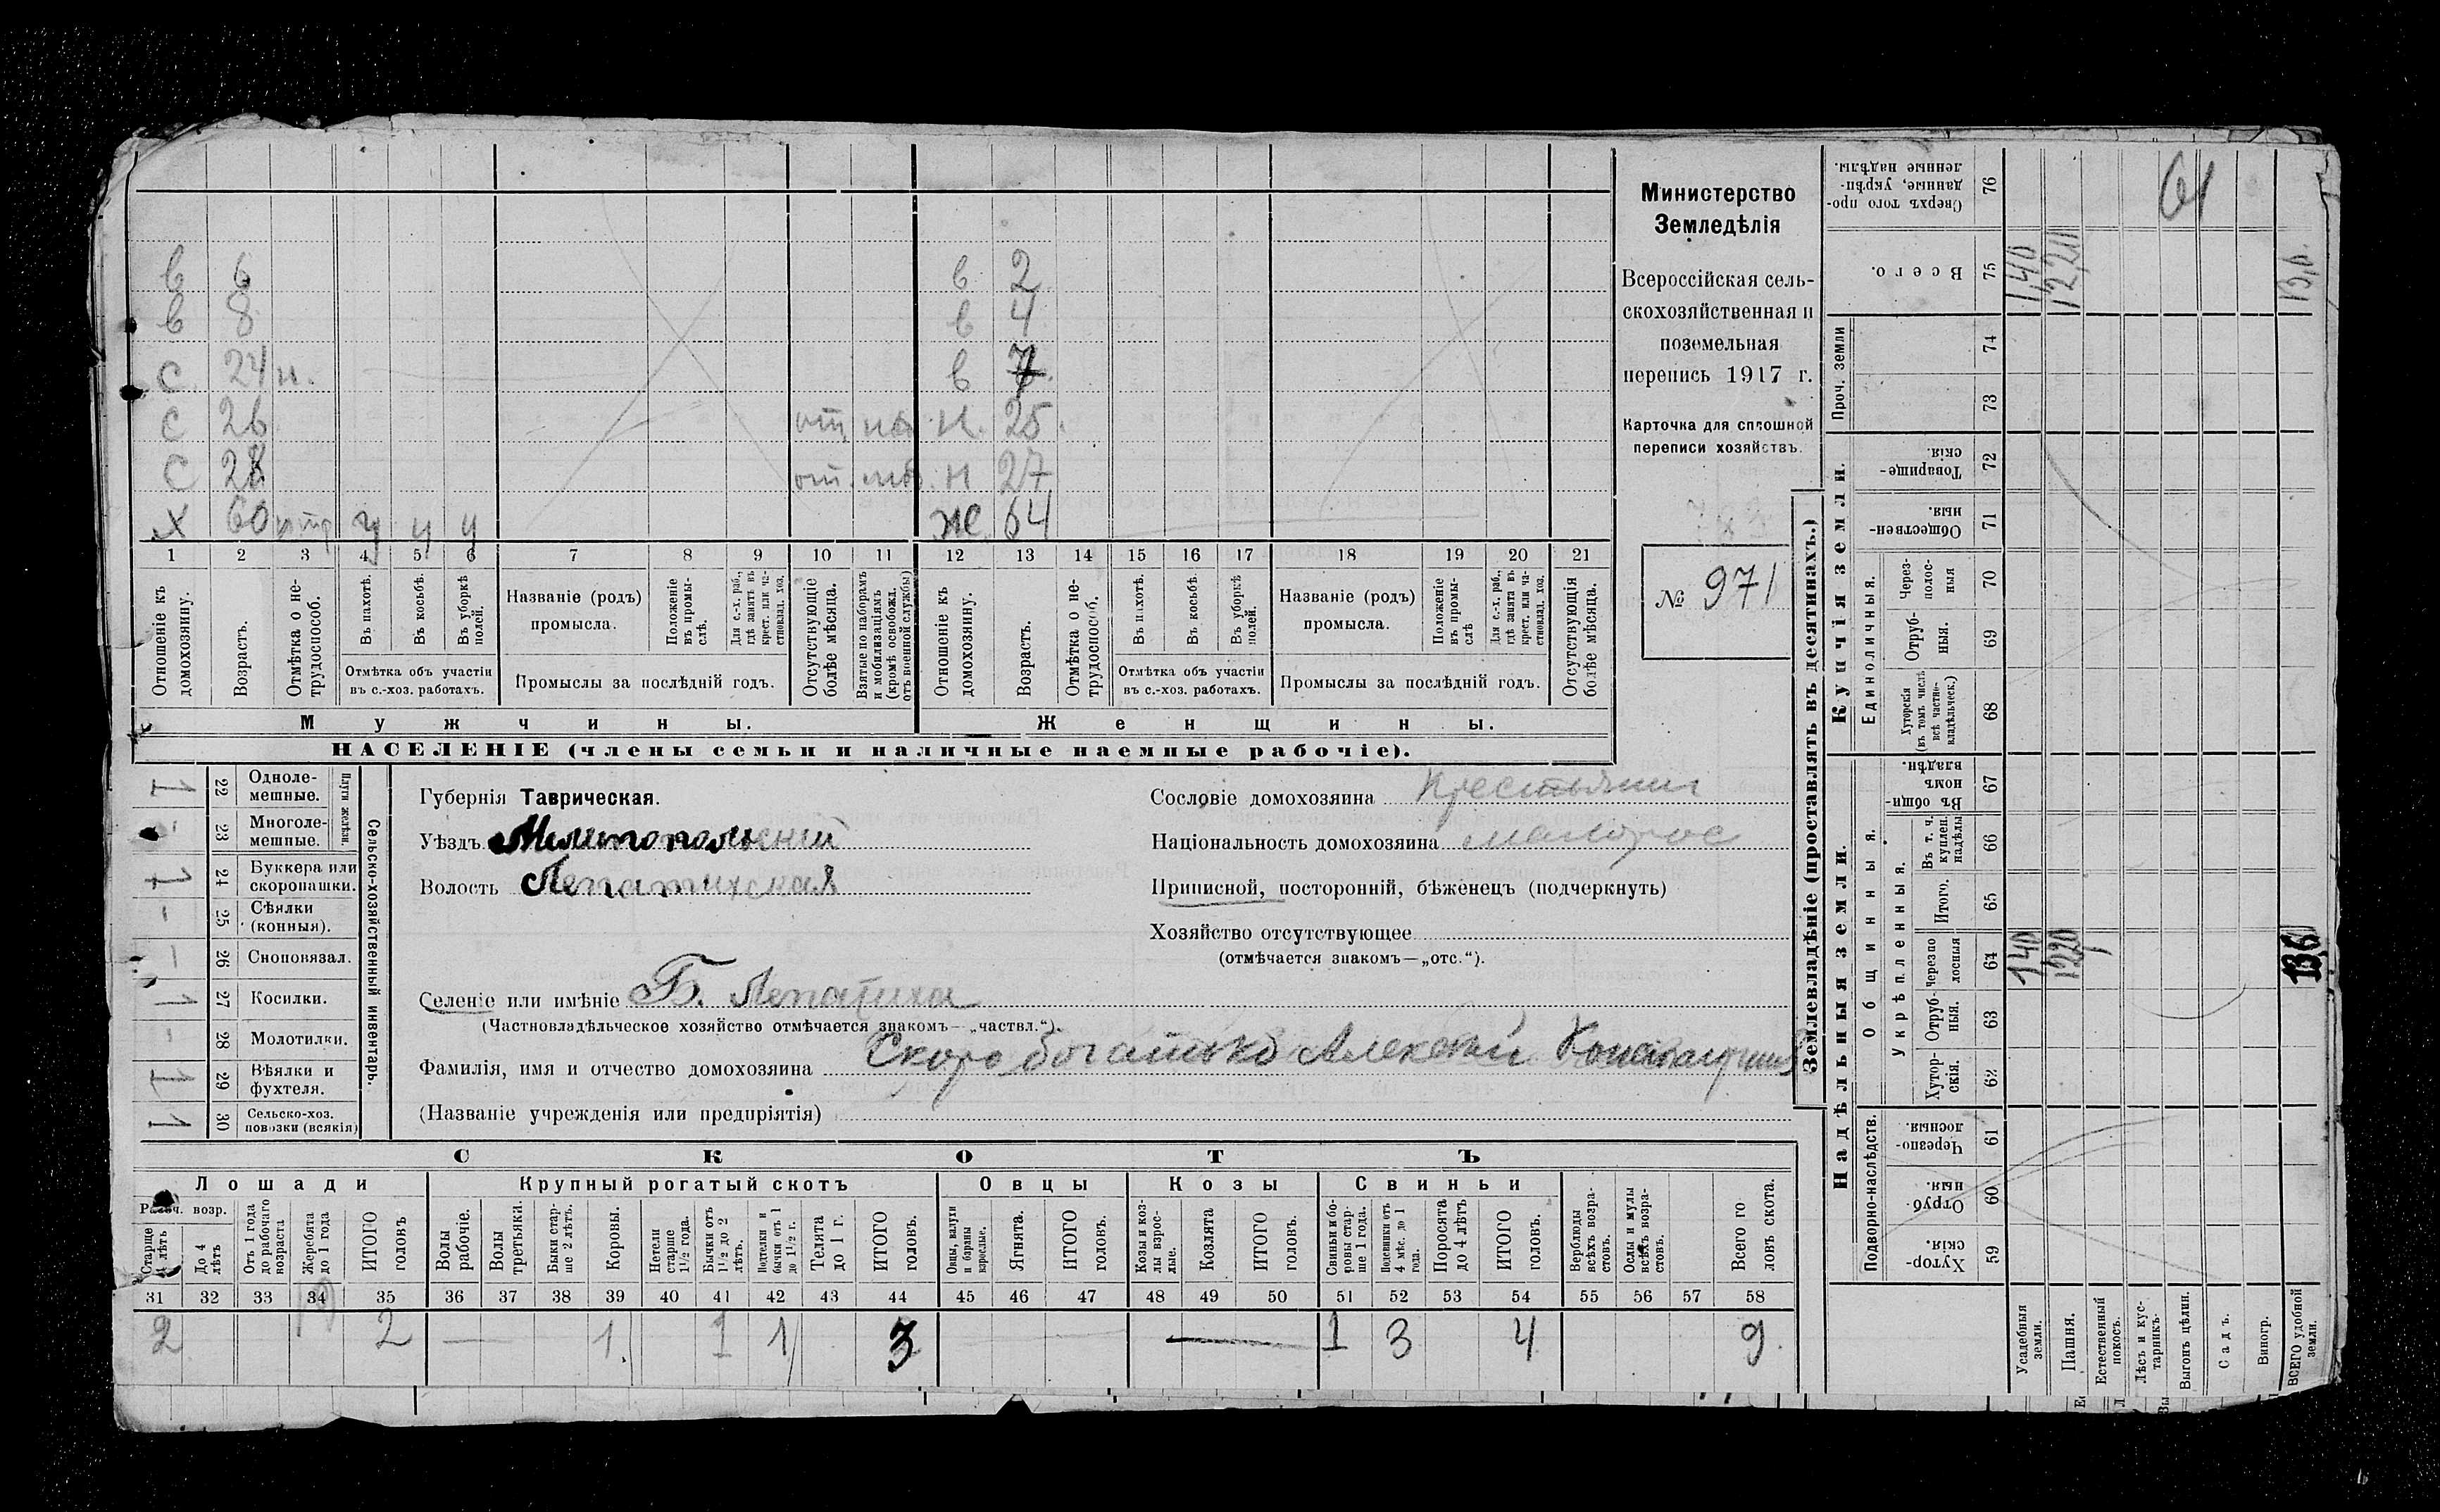 Министерство
Земледѣлія
Всероссійская сель-
скохозяйственная и
поземельная
перепись 1917 г.
Карточка для сплошной
переписи хозяйствъ.
№ 971
в 6 в 2
в 8 в 4
с 24 н. в 7
с 26 от мб н. 25
с 28 от. моб. н 27
х 60 у у у ж 64
1 2 3 4 5 6 7 8 9 10 11 12 13 14 15 16 17 18 19 20 21
Отношеніе къ домохозяину.
Возрастъ.
Отмѣтка о не-трудоспособ.
Въ пахотѣ.
Въ косьбѣ.
Въ уборкѣ полей.
Отмѣтка объ участіи
въ с.-хоз. работахъ.
Названіе (родъ)
промысла.
Положеніе въ промы-слѣ.
Для с.-х. раб., гдѣ занятъ въ крест. или ча-стновлад. хоз.
Промыслы за послѣдній годъ.
Отсутствующіе болѣе мѣсяца.
Взятые по наборамъ и мобилизаціямъ (кромѣ освобожд. отъ военной службы)
Отношеніе къ домохозяину.
Возрастъ.
Отмѣтка о не-трудоспособ.
Въ пахотѣ.
Въ косьбѣ.
Въ уборкѣ полей.
Отмѣтка объ участіи
въ с.-хоз. работахъ.
Названіе (родъ)
промысла.
Положеніе въ промы-слѣ
Для с.-х. раб., гдѣ занята въ крест. или ча-стновлад. хоз.
Промыслы за послѣдній годъ.
Отсутствующія болѣе мѣсяца.
Мужчины. Женщины.
НАСЕЛЕНІЕ (члены семьи и наличные наемные рабочіе).
Сельско-хозяйственный инвентарь.
Плуги желѣзн.
1 22 Одноле-мешные.
- 23 Многоле-мешные.
1 24 Буккера или скоропашки.
- 25 Сѣялки (конныя).
- 26 Сноповязал.
1 27 Косилки.
- 28 Молотилки.
1 29 Вѣялки и фухтеля.
1 30 Сельско-хоз. повозки (всякія)
Губернія Таврическая.
Уѣздъ Мелитопольскій
Волость Лепатихская
Сословіе домохозяина Крестьянин
Національность домохозяина малорос
Приписной, посторонній, бѣженецъ (подчеркнуть)
Хозяйство отсутствующее
(отмѣчается знакомъ—„отс.“).
Селеніе или имѣніе Б. Лепатиха
(Частновладѣльческое хозяйство отмѣчается знакомъ—„частвл.“).
Фамилія, имя и отчество домохозяина Скоробогатько Алексѣй
(Названіе учрежденія или предпріятія)
СКОТЪ
Лошади Крупный рогатый скотъ Овцы Козы Свиньи
Рабоч. возр.
Старше 4 лѣтъ
До 4 лѣтъ
Отъ 1 года до рабочаго возраста
Жеребята до 1 года
ИТОГО головъ
Волы рабочіе.
Волы третьяки.
Быки стар-ше 2 лѣтъ.
Коровы.
Нетели старше 1½ года.
Бычки отъ 1½ до 2 лѣтъ.
Нетелки и бычки отъ 1 до 1½ г.
Телята до 1 г.
ИТОГО головъ.
Овцы, валухи и бараны взрослые.
Ягнята.
ИТОГО головъ.
Козы и коз-лы взрос-лые.
Козлята
ИТОГО головъ.
Свиньи и бо-ровы стар-ше 1 года.
Подсвинки отъ 4 мѣс. до 1 года.
Поросята до 4 лѣтъ
ИТОГО головъ.
Верблюды всѣхъ возра-стовъ.
Ослы и мулы всѣхъ возра-стовъ.
Всего го ловъ скота.
31 32 33 34 35 36 37 38 39 40 41 42 43 44 45 46 47 48 49 50 51 52 53 54 55 56 57 58
2 2 — 1 1 1 3 — 1 3 4 9
Землевладѣніе (проставлять въ десятинахъ.)
Надѣльныя земли. Купчія земли.
Подворно-наслѣдств.
Общинныя.
Укрѣпленныя.
Единоличныя.
Проч. земли
76 Сверхъ того про-данные, укрѣп-ленные надѣлы.
61
75 Всего. 1,40 12,20 13,6
74
73
72 Товарище-скія.
71 Обществен-ныя.
70 Через-полос-ныя
69 Отруб-ныя.
68 Хуторскія (въ томъ числѣ всѣ частно-владѣльческ.)
67 Въ общи-номъ владѣн.
66 Въ т. ч. куплен. надѣлы
65 Итого.
64 Черезпо лосныя 1,40 12,20 13,6
63 Отруб-ныя.
62 Хутор-скія.
61 Черезпо-лосныя.
60 Отруб-ныя.
59 Хутор-скія.
Усадебныя земли.
Пашня.
Естественный покосъ.
Лѣсъ и кус-тарникъ.
Выгонъ цѣлин.
Садъ.
Виногр.
ВСЕГО удобной земли.